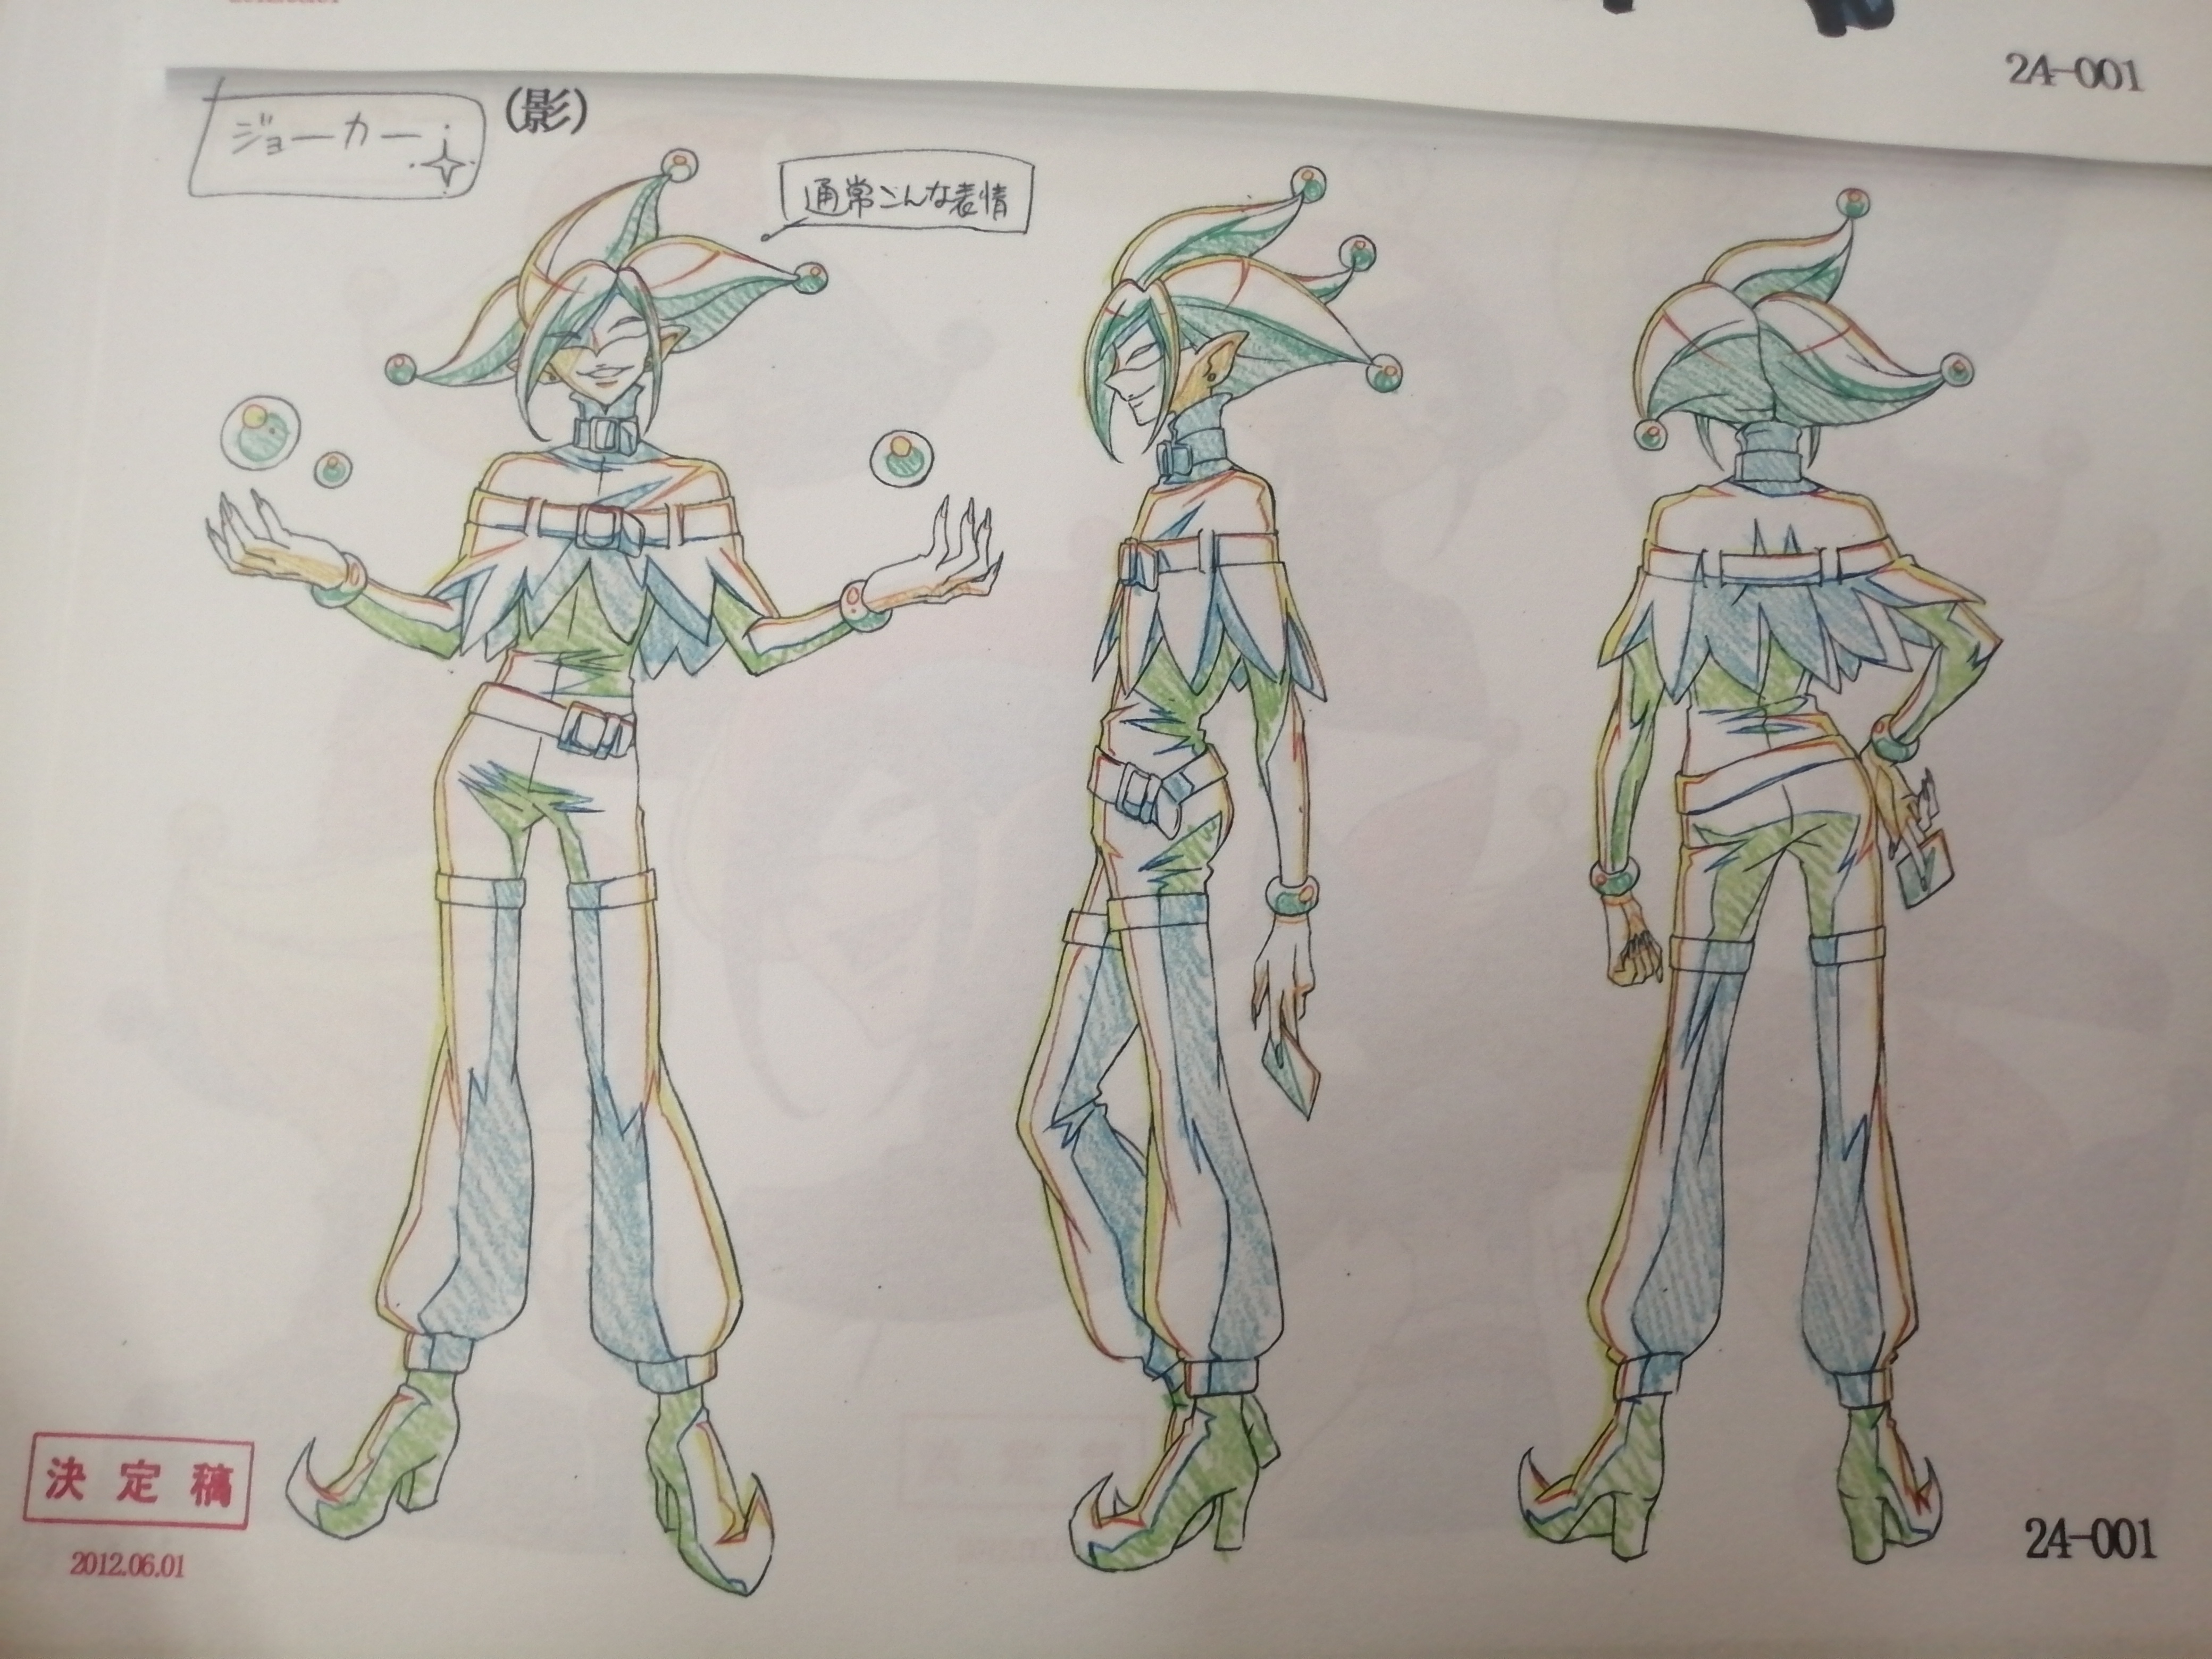 24-001
ジョーカー
(影)
通常こんな表情
決定稿
2012.06.01
24-001